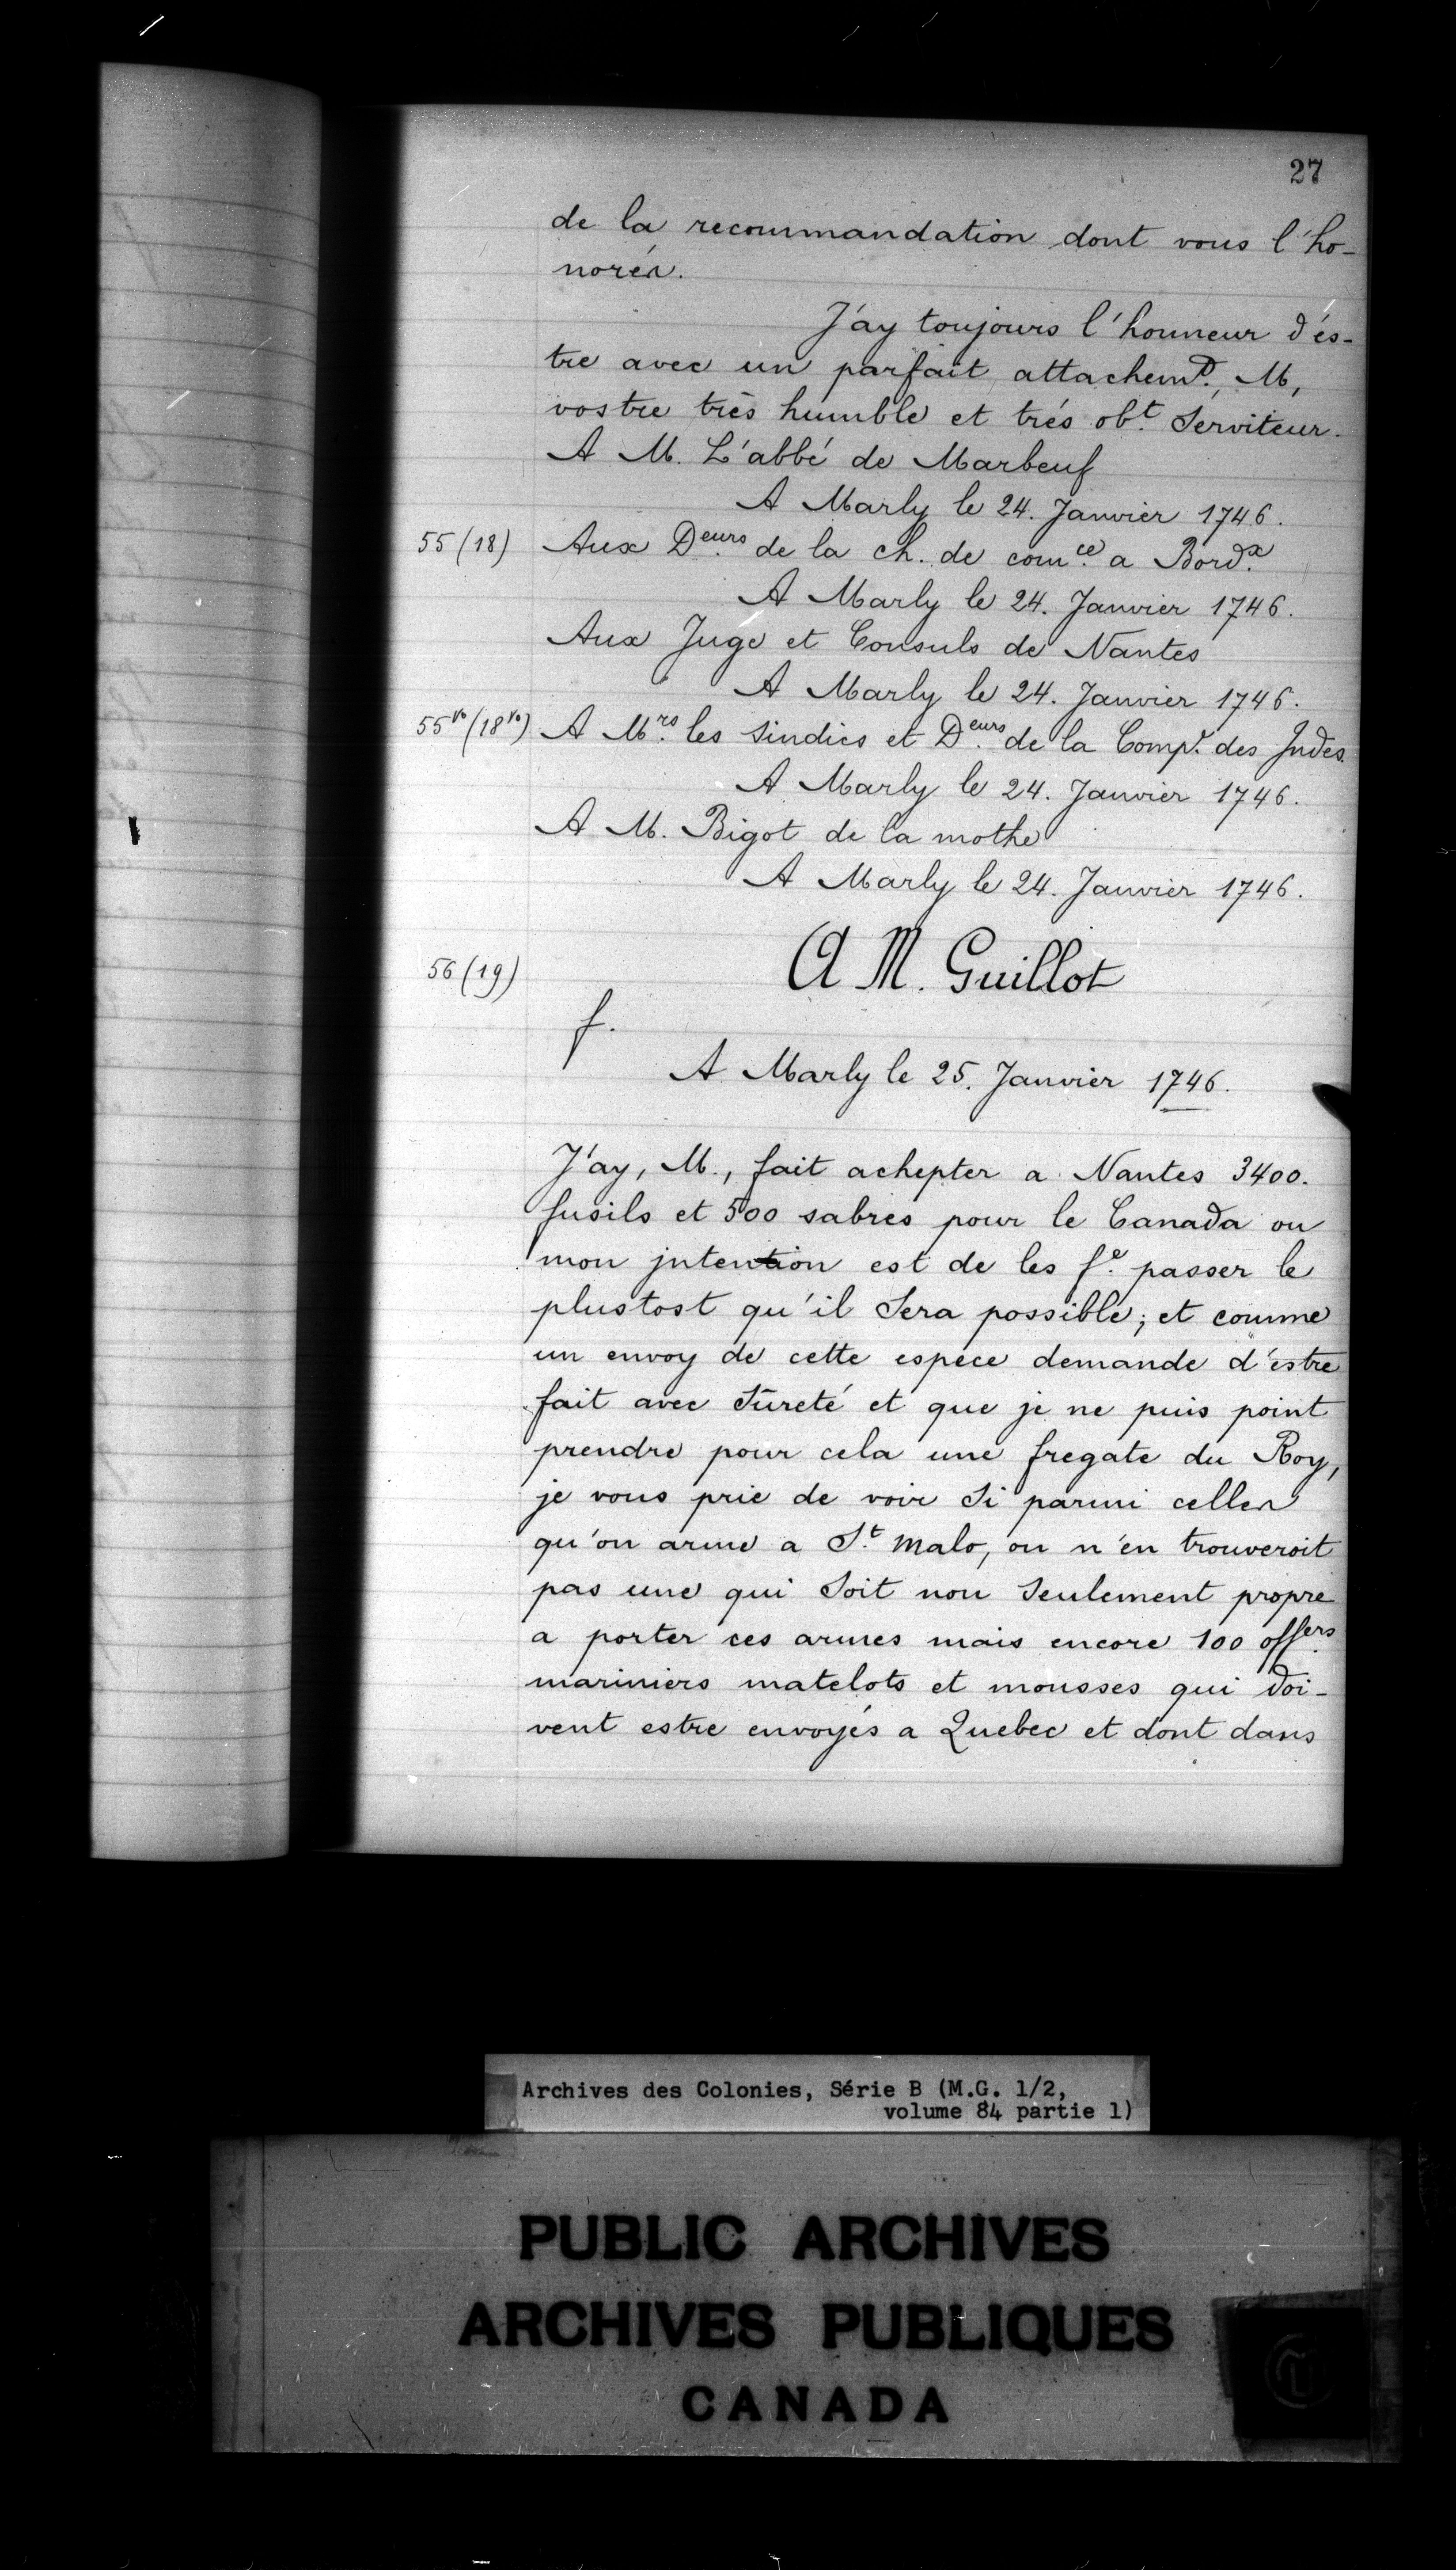 27
de la recommandation dont vous l'ho-
norés.
J'ay toujours l'honneur d'es-
tre avec un parfait attachemt., M,
vostre très humble et trés obt. Serviteur.
A M. L'abbé de Marbeuf
A Marly le 24. Janvier 1746.
55 (18) Aux Deurs. de la ch. de comce. a Bordx.
A Marly le 24. Janvier 1746.
Aux Juge et Consuls de Nantes
A Marly le 24. Janvier 1746.
55vo (18vo) A Mrs. les Sindics et Deurs. de la Compe. des Indes.
A Marly le 24. Janvier 1746.
A M. Bigot de la mothe
A Marly le 24. Janvier 1746.
56 (19) A M. Guillot
f.
A Marly le 25. Janvier 1746.
J'ay, M., fait achepter a Nantes 3400.
fusils et 500 sabres pour le Canada ou
mon jntention est de les fe. passer le
plustost qu'il Sera possible; et comme
un envoy de cette espece demande d'estre
fait avec Sûreté et que je ne puis point
prendre pour cela une fregate du Roy,
je vous prie de voir Si parmi celles
qu'on arme a St. Malo, on n'en trouveroit
pas une qui Soit non Seulement propre
a porter ces armes mais encore 100 offers.
mariniers matelots et mousses qui doi-
vent estre envoyés a Quebec et dont dans
Archives des Colonies, Série B (M.G. 1/2,
volume 84 partie 1)
PUBLIC ARCHIVES
ARCHIVES PUBLIQUES
CANADA